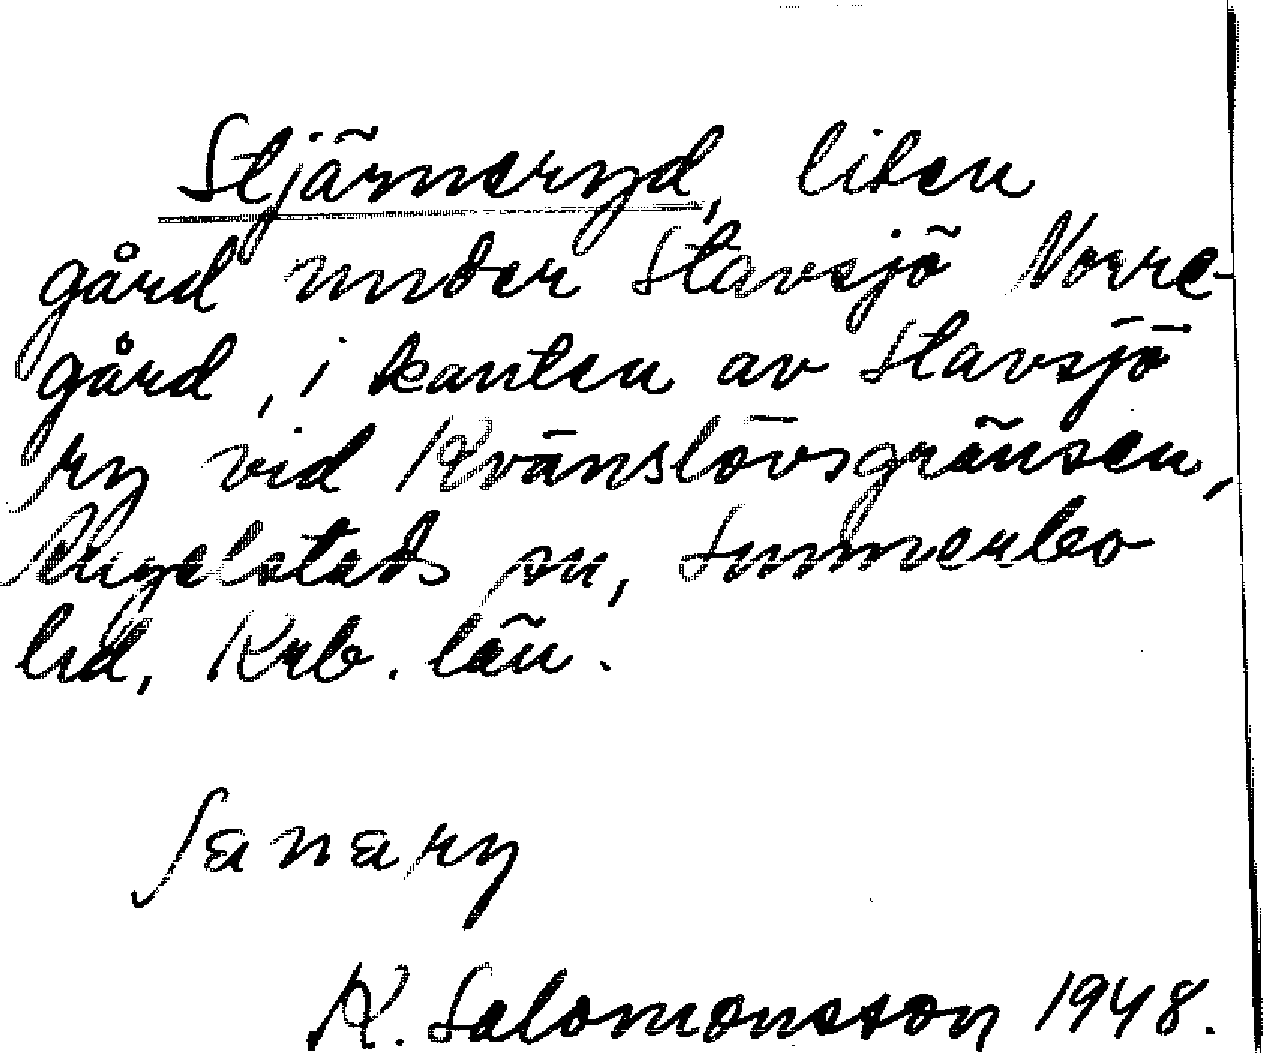 Stjärneryd, liten
gård under Stavsjö Norre-
gård, i kanten av Stavsjö
ry vid Kvänslövsgränsen,
Angelstads sn, Sunnerbo
hd, Krb. län.
K. Salomonsson 1948.